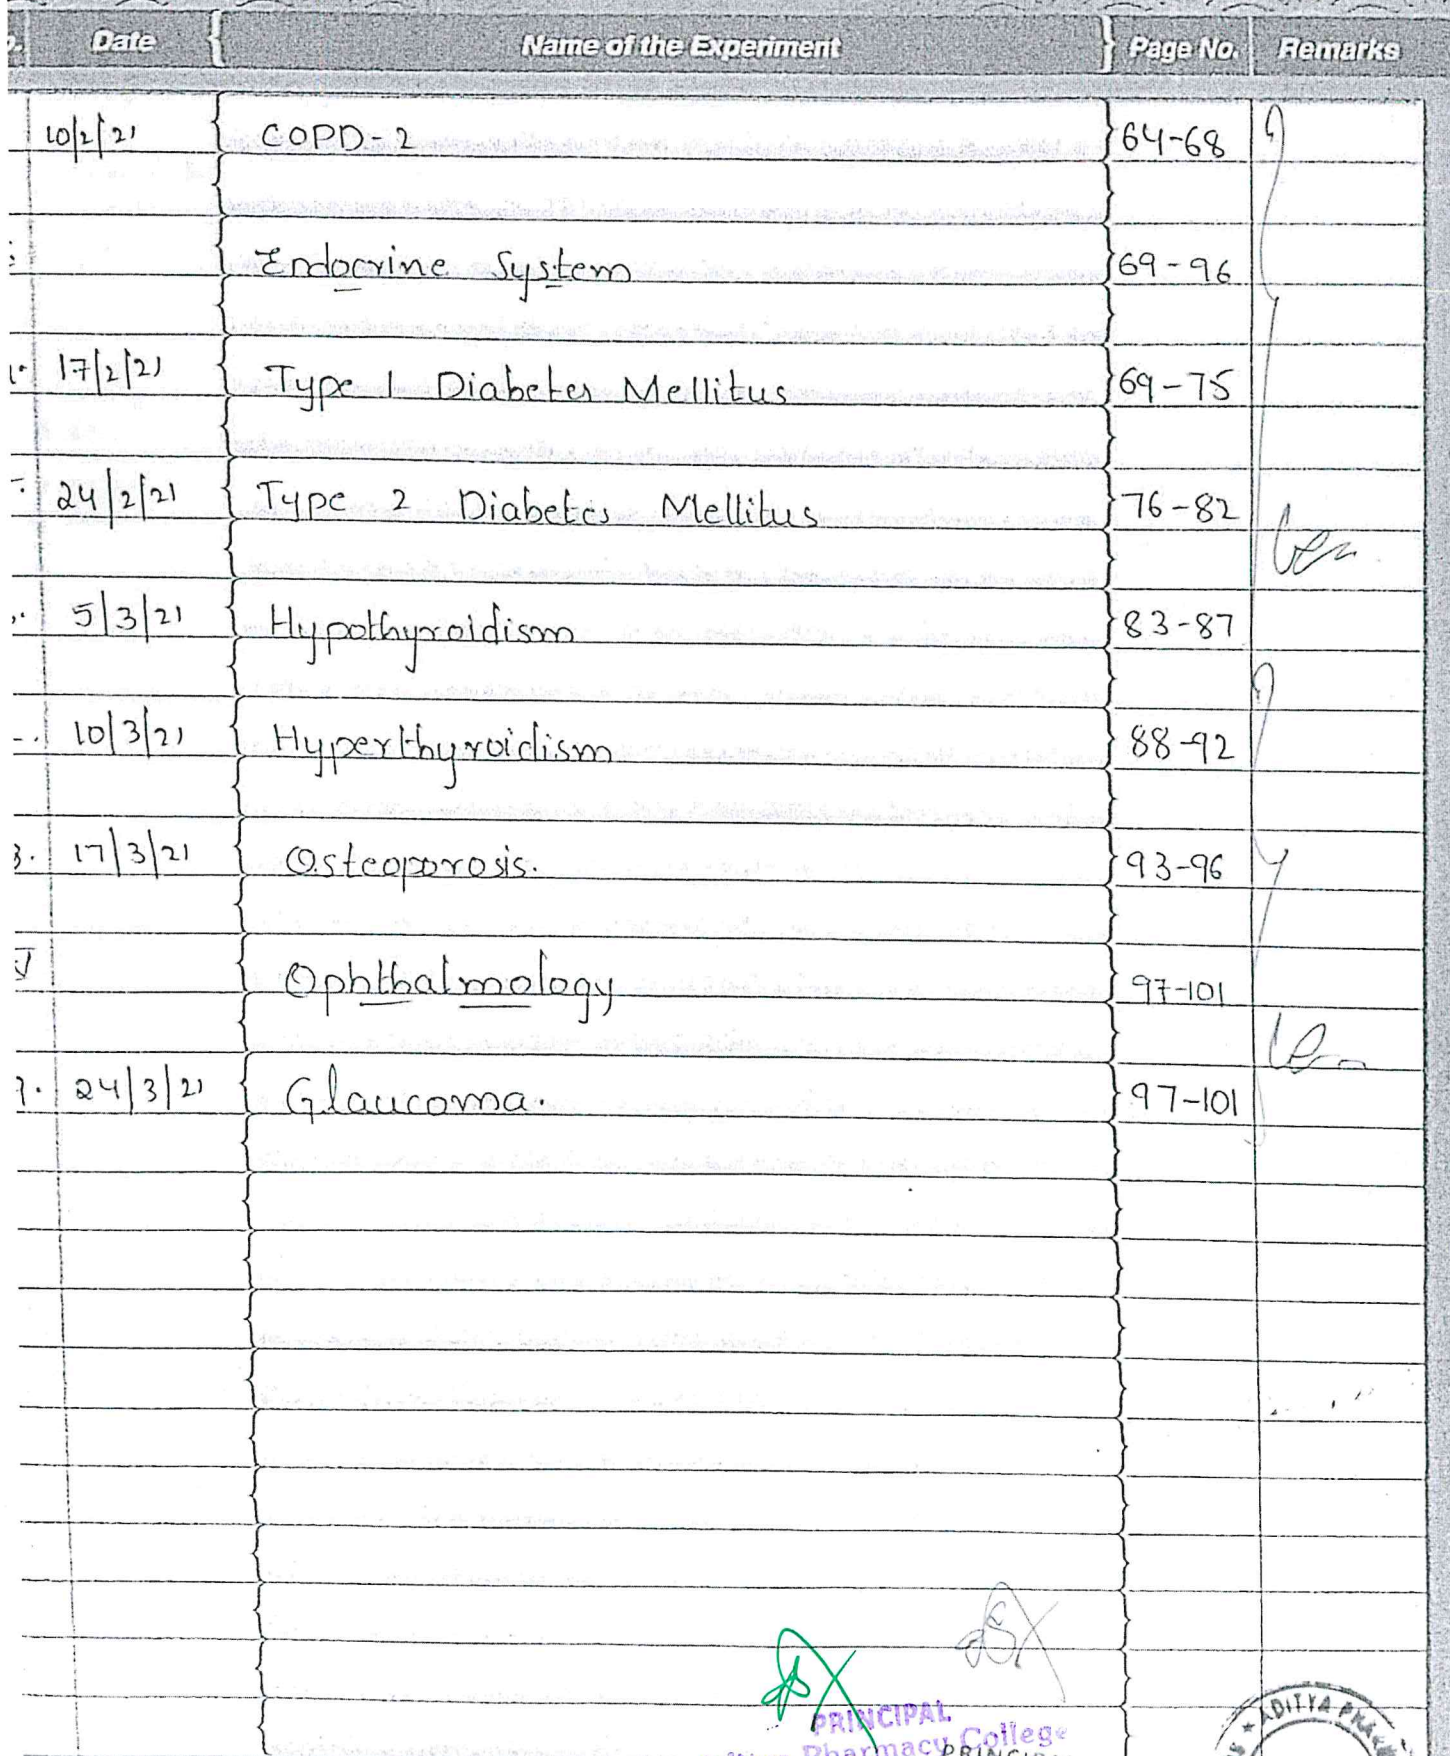 Date Name of the Experiment Page No. Remarks
10/2/21 COPD-2 64-68
Endocrine System 69-96
17/2/21 Type 1 Diabetes Mellitus 69-75
24/2/21 Type 2 Diabetes Mellitus 76-82
5/3/21 Hypothyroidism 83-87
10/3/21 Hyperthyroidism 88-92
3. 17/3/21 Osteoporosis. 93-96
Ophthalmology 97-101
24/3/21 Glaucoma. 97-101
PRINCIPAL
Pharmacy College
ADITYA